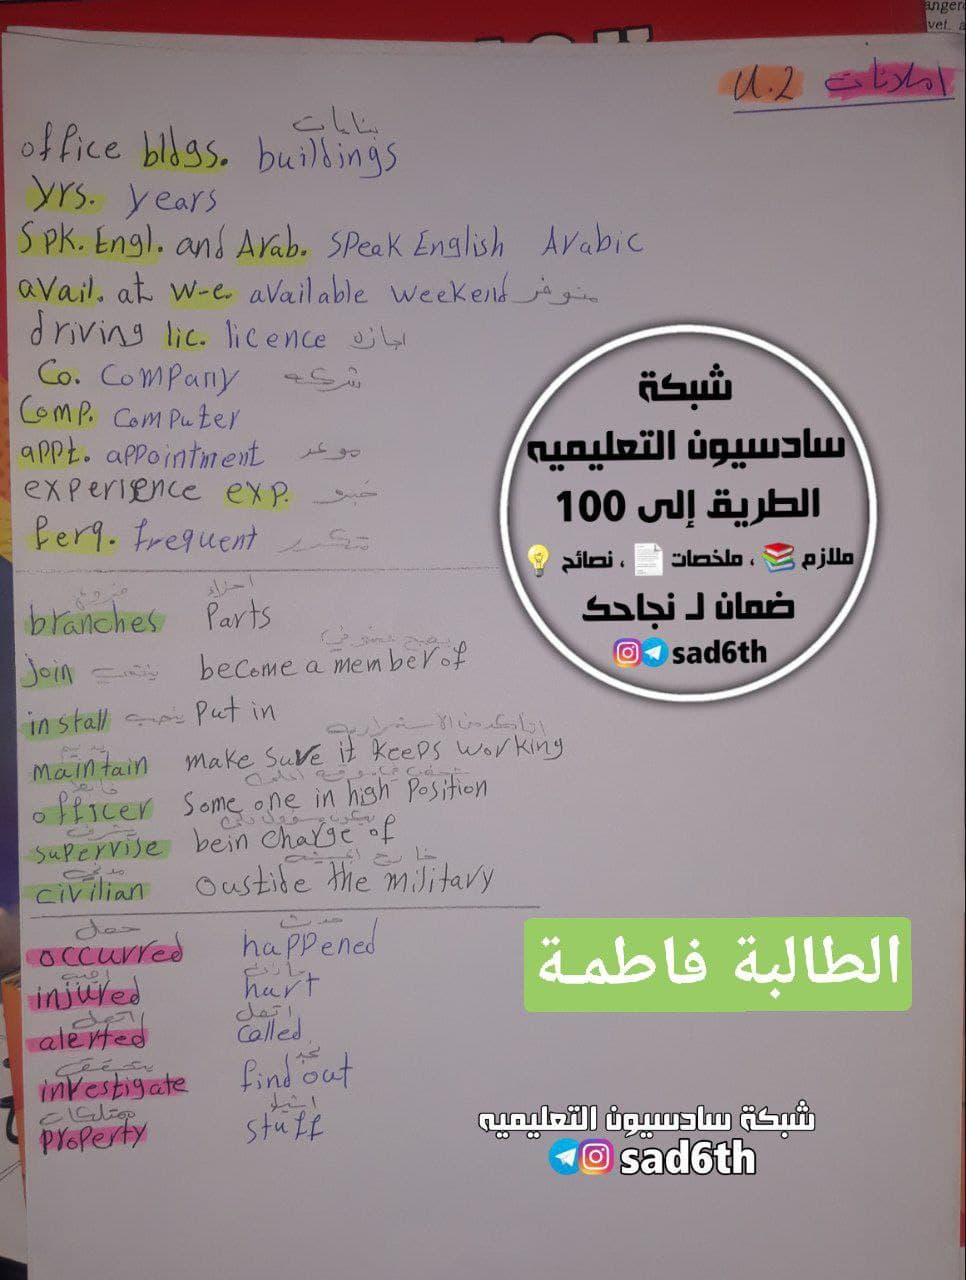 anger
vet. a
املائات U.2
بنايات
office bldgs. buildings
yrs. years
Spk. Engl. and Arab. Speak English Arabic
avail. at w-e. available weekend متوفر
driving lic. licence اجازه
Co. Company شركه
Comp. Computer
appt. appointment موعد
experience exp.
ferq. frequent
فروع اجزاء
branches Parts
يصبح عضو في
Join ينتسب become a member of
install ينصب Put in
يديم
maintain make sure it keeps working
officer Some one in high Position
يشرف
supervise bein charge of
مدني
civilian oustide the military
حصل حدث
occurred happened
injured hurt
اتصل اتصل
alerted Called
يتحقق
investigate find out
ممتلكات
property stuff
شبكة
سادسيون التعليميه
الطريق إلى 100
ملازم 📚 ، ملخصات 📄 ، نصائح 💡
ضمان لـ نجاحك
sad6th
الطالبة فاطمة
شبكة سادسيون التعليميه
sad6th